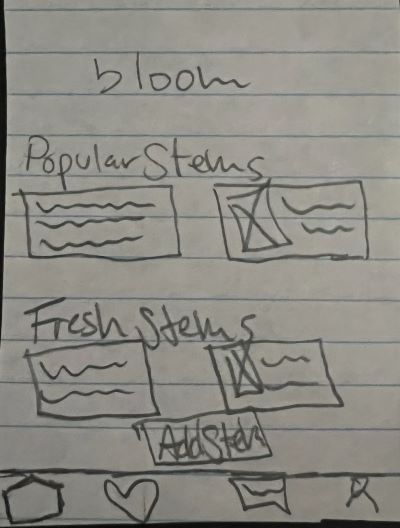 bloom
Popular Stems
Fresh Stems
Add Stem